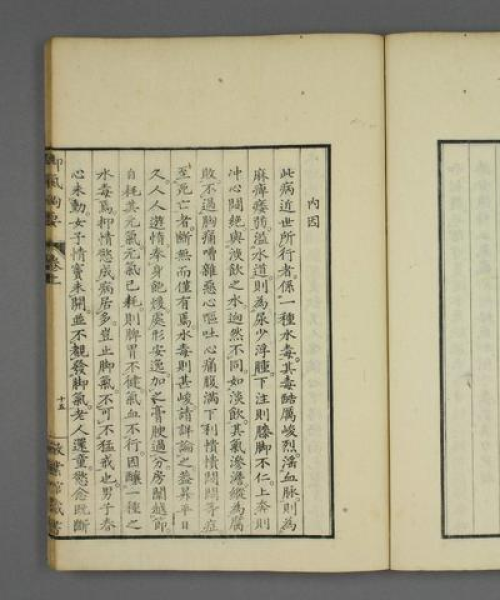 内因
此病近世所行者。係一種水毒。其毒酷厲峻烈。溢血脉。則為
麻痺痿弱。溢水道。則為尿少浮腫。下注則膝脚不仁。上奔則
冲心悶絶。與淡飲之水。逈然不同。如淡飲。其氣滲澹。縱為腐
敗。不過胸痛嘈雜惡心嘔吐心痛腹滿下利憒憒悶悶等症
至死亡者。斷無而僅有焉。水毒則甚峻。請詳論之。蓋昇平日
久。人人遊惰。奉身飽煖。處形安逸。加之膏腴過分。房闈越節。
自耗其元氣。元氣已耗。則脾胃不健。氣血不行。因釀一種之
水毒焉。抑情慾成病居多。豈止脚氣。不可不猛戒也。男子春
心未動。女子情竇未開。並不親發脚氣。老人還童。慾念既斷
脚氣鉤要
卷上
十五
敬業館藏書